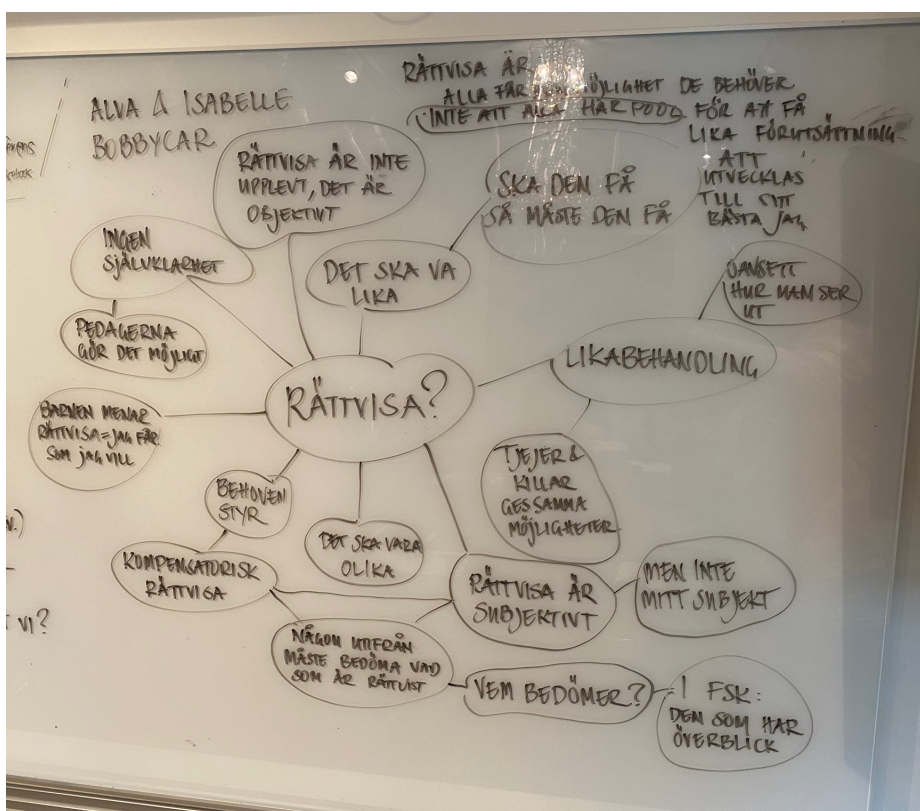 ALVA & ISABELLE
BOBBYCAR
RÄTTVISA ÄR
ALLA FÅR MÖJLIGHET DE BEHÖVER
INTE ATT ALLA HAR FOOD FÖR ATT FÅ
LIKA FÖRUTSÄTTNING
ATT
UTVECKLAS
TILL SITT
BÄSTA JAG
RÄTTVISA ÄR INTE
UPPLEVT, DET ÄR
OBJEKTIVT
SKA DEN FÅ
SÅ MÅSTE DEN FÅ
INGEN
SJÄLVKLARHET
DET SKA VA
LIKA
OAVSETT
HUR MAN SER
UT
PEDAGERNA
GÖR DET MÖJLIGT
LIKABEHANDLING
RÄTTVISA?
BARNEN MENAR
RÄTTVISA = JAG FÅR
SOM JAG VILL
TJEJER &
KILLAR
GES SAMMA
MÖJLIGHETER
BEHOVEN
STYR
DET SKA VARA
OLIKA
KOMPENSATORISK
RÄTTVISA
RÄTTVISA ÄR
SUBJEKTIVT
MEN INTE
MITT SUBJEKT
VI?
NÅGON UTIFRÅN
MÅSTE BEDÖMA VAD
SOM ÄR RÄTTVIST
VEM BEDÖMER?
I FSK:
DEN SOM HAR
ÖVERBLICK